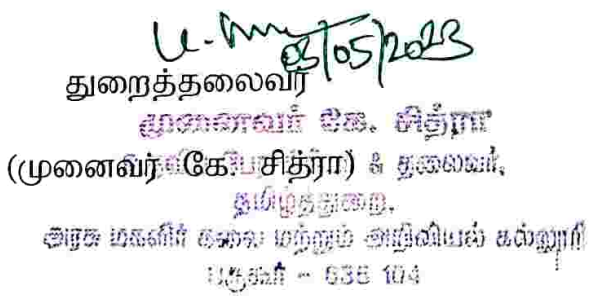 03/05/2023
துறைத்தலைவர்
முனைவர் கே. சித்ரா
(முனைவர் கே. சித்ரா) & தலைவர்,
தமிழ்த்துறை,
அரசு மகளிர் கலை மற்றும் அறிவியல் கல்லூரி
பருகூர் - 635 104